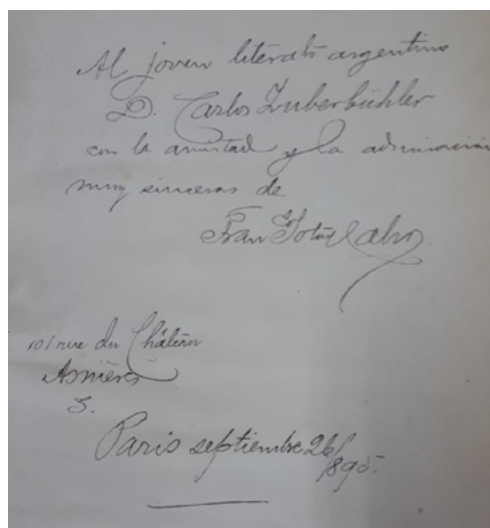 Al joven literato argentino
D. Carlos Zuberbühler
con la amistad y la admiración
muy sinceras de
Fran Soto y Calvo.
101 rue du Château
Asnières
S.
Paris septiembre 26/895.